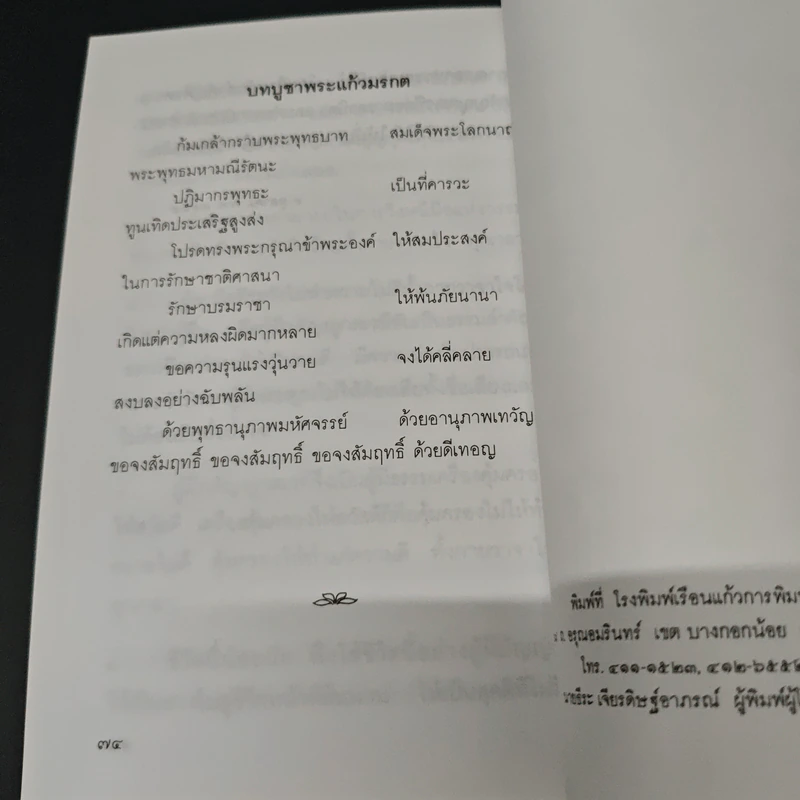 บทบูชาพระแก้วมรกต
ก้มเกล้ากราบพระพุทธบาท สมเด็จพระโลกนาถ
พระพุทธมหามณีรัตนะ
ปฏิมากรพุทธะ เป็นที่คารวะ
ทูนเทิดประเสริฐสูงส่ง
โปรดทรงพระกรุณาข้าพระองค์ ให้สมประสงค์
ในการรักษาชาติศาสนา
รักษาบรมราชา ให้พ้นภัยนานา
เกิดแต่ความหลงผิดมากหลาย
ขอความรุนแรงวุ่นวาย จงได้คลี่คลาย
สงบลงอย่างฉับพลัน
ด้วยพุทธานุภาพมหัศจรรย์ ด้วยอานุภาพเทวัญ
ขอจงสัมฤทธิ์ ขอจงสัมฤทธิ์ ขอจงสัมฤทธิ์ ด้วยดีเทอญ
๗๔
พิมพ์ที่ โรงพิมพ์เรือนแก้วการพิม
อรุณอมรินทร์ เขต บางกอกน้อย
โทร. ๔๑๑-๑๕๒๓, ๔๑๒-๖๕๕๒
เจียรดิษฐ์อาภรณ์ ผู้พิมพ์ผู้